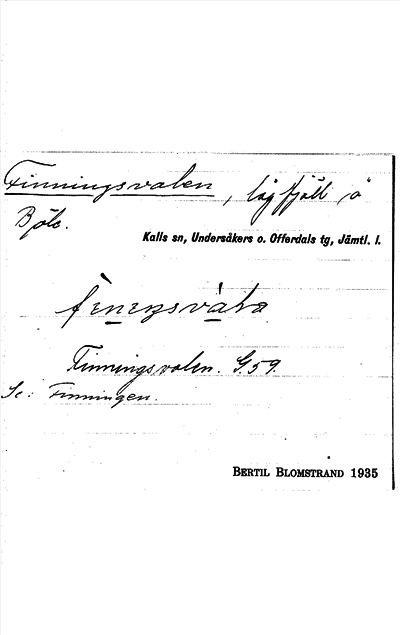 Finningsvalen, lågfjäll å
Björ.
Kalls sn, Undersåkers o. Offerdals tg, Jämtl. l.
Finningsvalen. G.59.
Se: Finningen.
BERTIL BLOMSTRAND 1935